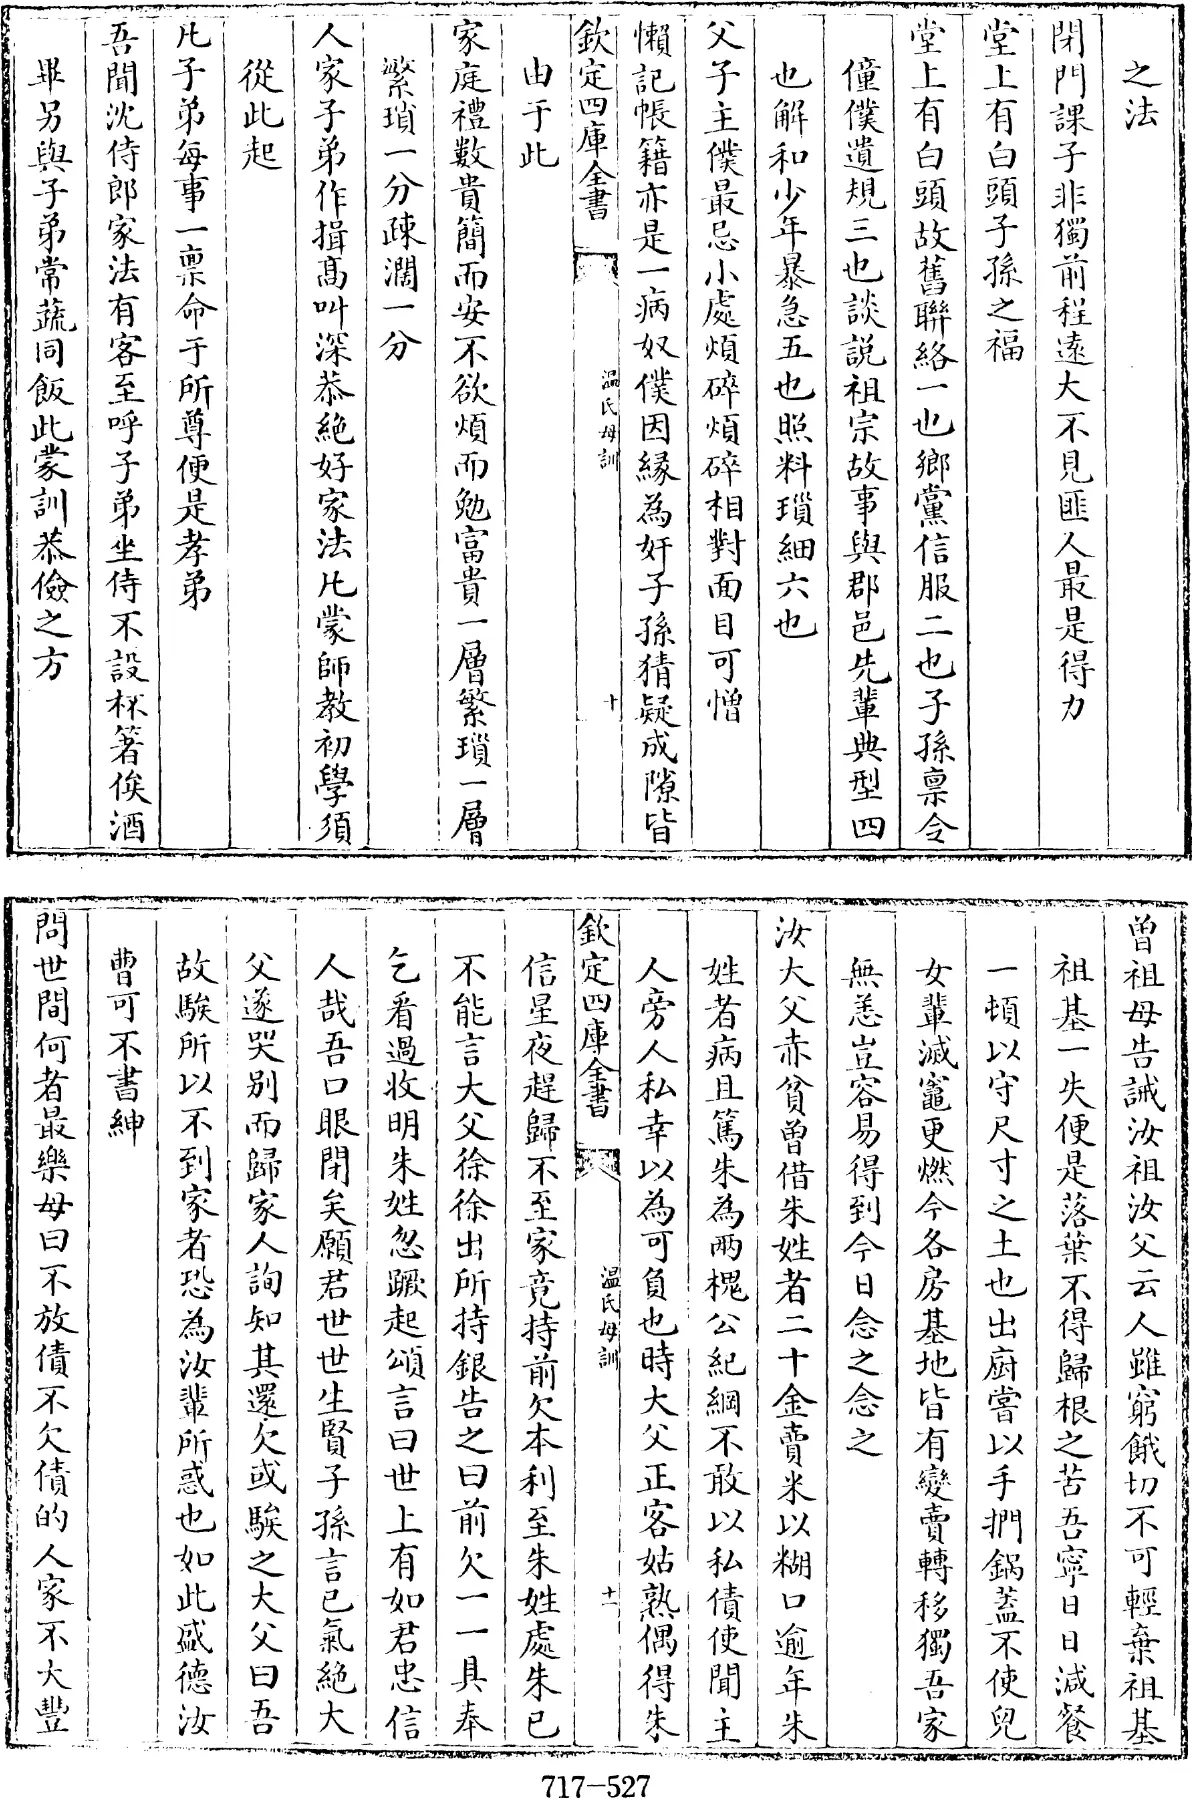 之法
閉門課子非獨前程遠大不見匪人最是得力
堂上有白頭子孫之福
堂上有白頭故舊聯絡一也鄉黨信服二也子孫禀令
僮僕遺規三也談說祖宗故事與郡邑先輩典型四
也解和少年暴急五也照料瑣細六也
父子主僕最忌小處煩碎煩碎相對面目可憎
懶記帳籍亦是一病奴僕因緣為奸子孫猜疑成隙皆
欽定四庫全書
温氏母訓
十
由于此
家庭禮數貴簡而安不欲煩而勉富貴一層繁瑣一層
繁瑣一分疎濶一分
人家子弟作揖高叫深恭絶好家法凡蒙師教初學須
從此起
凡子弟每事一禀命于所尊便是孝弟
吾聞沈侍郎家法有客至呼子弟坐侍不設杯箸俟酒
畢另與子弟常蔬同飯此蒙訓恭儉之方
曾祖母告誡汝祖汝父云人雖窮餓切不可輕棄祖基
祖基一失便是落葉不得歸根之苦吾寧日日減餐
一頓以守尺寸之土也出厨嘗以手捫鍋葢不使兒
女輩滅竈更燃今各房基地皆有變賣轉移獨吾家
無恙豈容易得到今日念之念之
汝大父赤貧曾借朱姓者二十金賣米以糊口逾年朱
姓者病且篤朱為兩槐公紀綱不敢以私債使聞主
人旁人私幸以為可負也時大父正客姑熟偶得朱
欽定四庫全書
温氏母訓
十一
信星夜趕歸不至家竟持前欠本利至朱姓處朱已
不能言大父徐徐出所持銀告之曰前欠一一具奉
乞看過收明朱姓忽蹶起頌言曰世上有如君忠信
人哉吾口眼閉矣願君世世生賢子孫言已氣絶大
父遂哭别而歸家人詢知其還欠或騃之大父曰吾
故騃所以不到家者恐為汝輩所惑也如此盛德汝
曹可不書紳
問世間何者最樂母曰不放債不欠債的人家不大豐
717-527